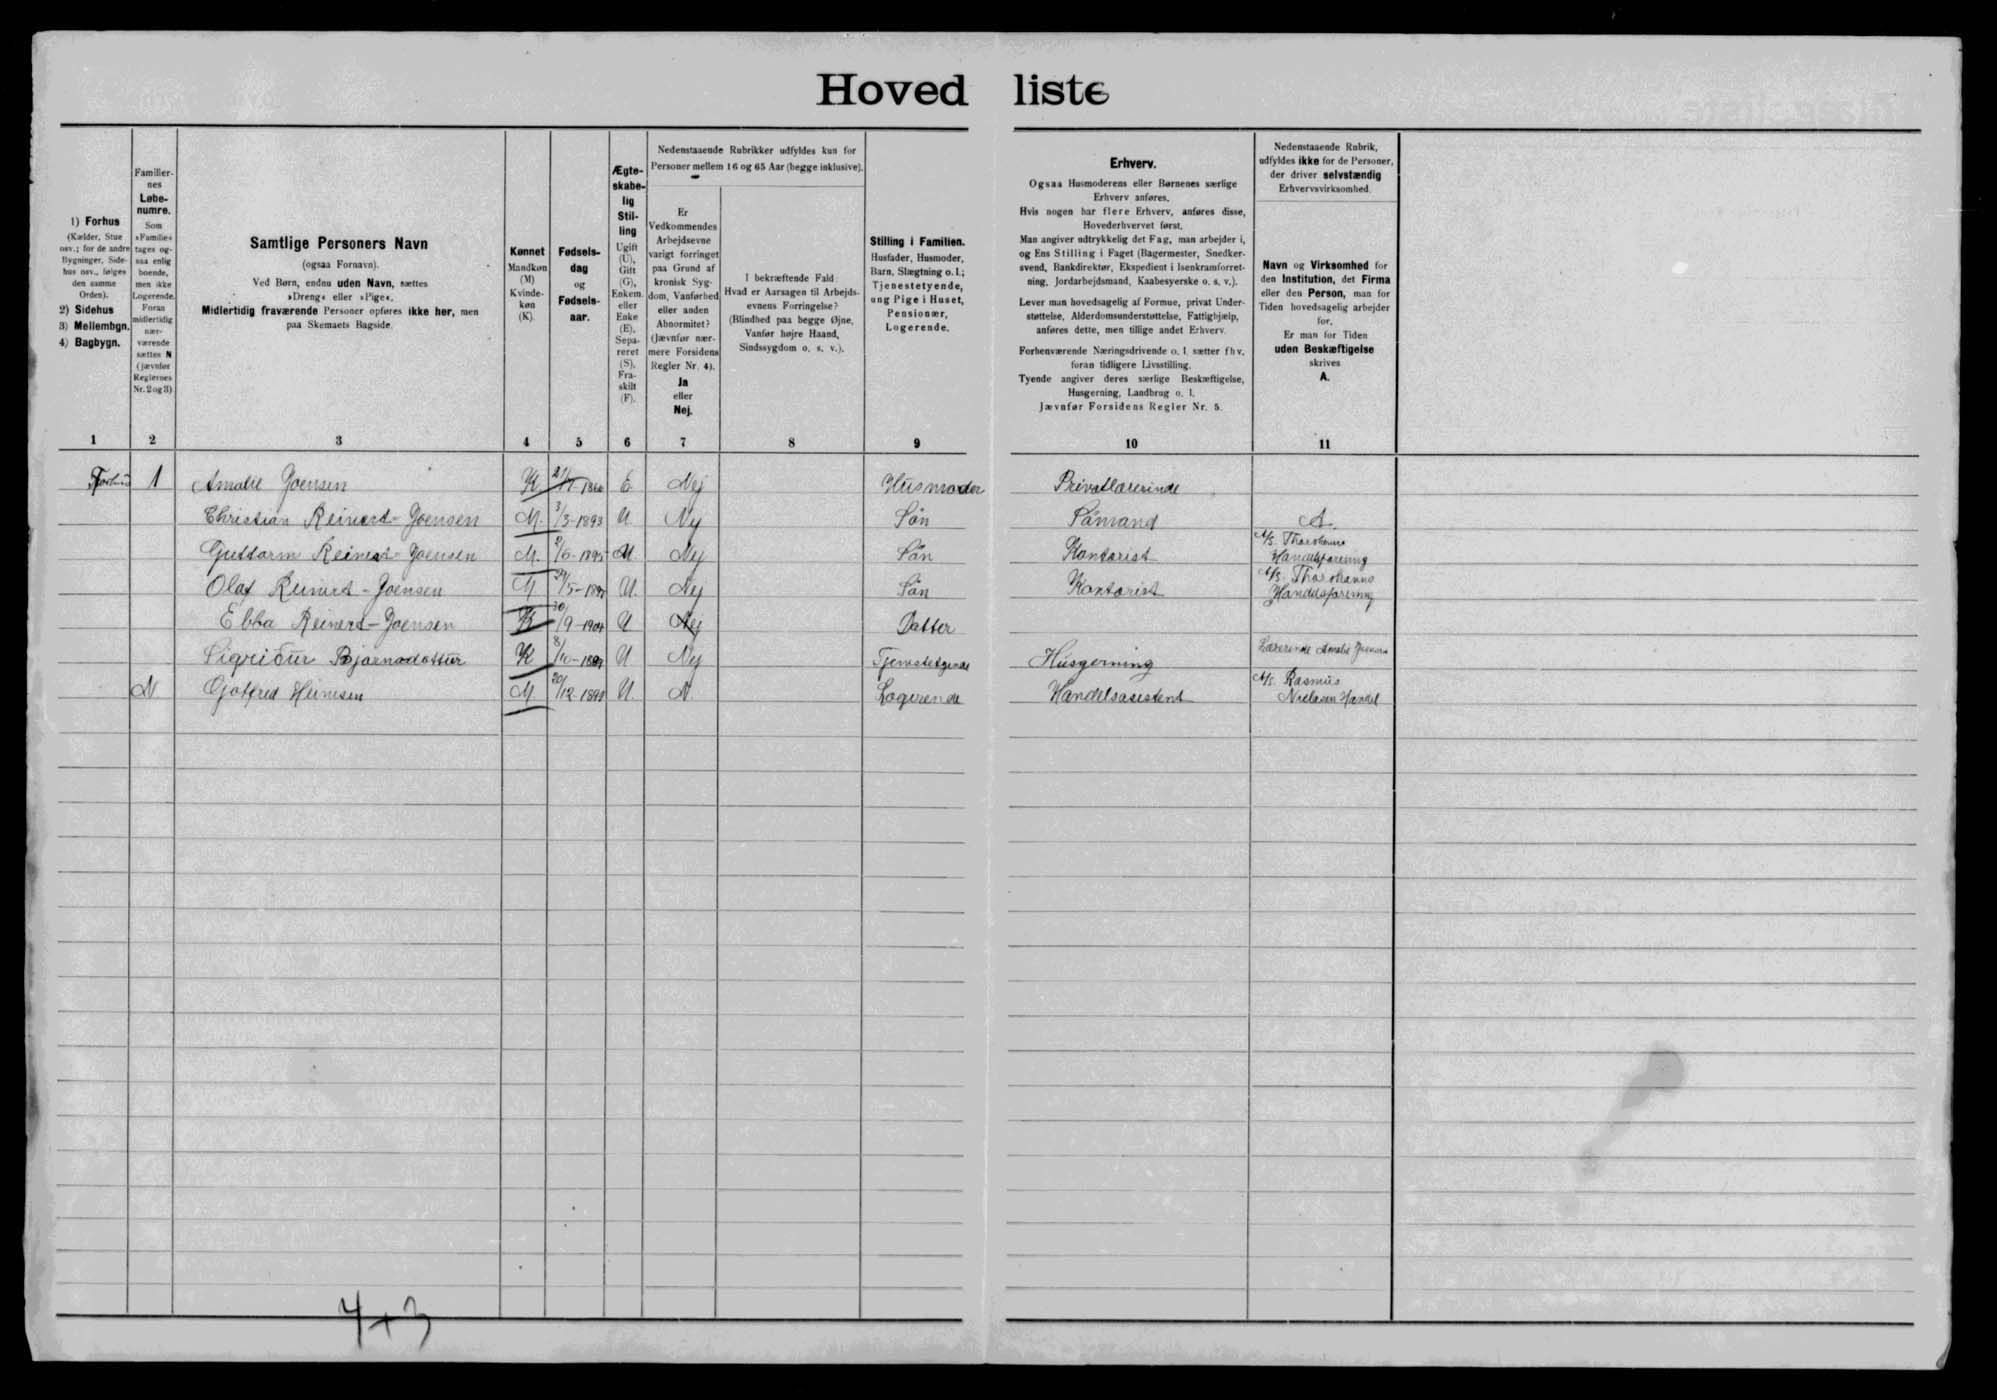 Hovedliste
1) Forhus
(Kælder, Stue
osv.; for de andre
Bygninger, Side-
hus osv., følges
den samme
Orden).
2) Sidehus
3) Mellembgn.
4) Bagbygn.
Familier-
nes
Løbe-
numre.
Som
»Familie«
tages og-
saa enlig
boende,
men ikke
Logerende.
Foran
midlertidig
nær-
værende
sættes N
(jævnfør
Reglernes
Nr. 2 og 3)
Samtlige Personers Navn
(ogsaa Fornavn).
Ved Børn, endnu uden Navn, sættes
»Dreng« eller »Pige«.
Midlertidig fraværende Personer opføres ikke her, men
paa Skemaets Bagside.
Kønnet
Mandkøn
(M)
Kvinde-
køn
(K).
Fødsels-
dag
og
Fødsels-
aar.
Ægte-
skabe-
lig
Stil-
ling
Ugift
(U),
Gift
(G),
Enkem.
eller
Enke
(E),
Sepa-
reret
(S),
Fra-
skilt
(F).
Nedenstaaende Rubrikker udfyldes kun for
Personer mellem 16 og 65 Aar (begge inklusive).
Er
Vedkommendes
Arbejdsevne
varigt forringet
paa Grund af
kronisk Syg-
dom, Vanførhed
eller anden
Abnormitet?
(Jævnfør nær-
mere Forsidens
Regler Nr. 4).
Ja
eller
Nej.
I bekræftende Fald:
Hvad er Aarsagen til Arbejds-
evnens Forringelse?
(Blindhed paa begge Øjne,
Vanfør højre Haand,
Sindssygdom o. s. v.).
Stilling i Familien.
Husfader, Husmoder,
Barn, Slægtning o. l.;
Tjenestetyende,
ung Pige i Huset,
Pensionær,
Logerende.
Erhverv.
Ogsaa Husmoderens eller Børnenes særlige
Erhverv anføres.
Hvis nogen har flere Erhverv, anføres disse,
Hovederhvervet først.
Man angiver udtrykkelig det Fag, man arbejder i,
og Ens Stilling i Faget (Bagermester, Snedker-
svend, Bankdirektør, Ekspedient i Isenkramforret-
ning, Jordarbejdsmand, Kaabesyerske o. s. v.).
Lever man hovedsagelig af Formue, privat Under-
støttelse, Alderdomsunderstøttelse, Fattighjælp,
anføres dette, men tillige andet Erhverv.
Forhenværende Næringsdrivende o. l. sætter fhv.
foran tidligere Livsstilling.
Tyende angiver deres særlige Beskæftigelse,
Husgerning, Landbrug o. l.
Jævnfør Forsidens Regler Nr. 5.
Nedenstaaende Rubrik,
udfyldes ikke for de Personer,
der driver selvstændig
Erhvervsvirksomhed.
Navn og Virksomhed for
den Institution, det Firma
eller den Person, man for
Tiden hovedsagelig arbejder
for.
Er man for Tiden
uden Beskæftigelse
skrives
A.
1 2 3 4 5 6 7 8 9 10 11
Forhus 1 Amalie Joensen K E Nej Husmoder Privatlærerinde
Christian Reinert-Joensen M. 3/3-1893 U. Nej Sön Sömand A.
Guttorm Reinert-Joensen M. U Nej Sön Kontorist A/S. Thorshavns Handelsforening
Olaf Reinert-Joensen M U. Nej Sön Kontorist A/S. Thorshavns Handelsforening
Ebba Reinert-Joensen K 30/9-1904 U Nej Datter
Sigriður Bjarnadottur K U Nej Tjenestetyende Husgerning Lærerinde Amalie Joensen
N Gotfred Heinesen M. U. N. Logerende Handelsasistent A/S. Rasmus Nielsen Handel
4+3